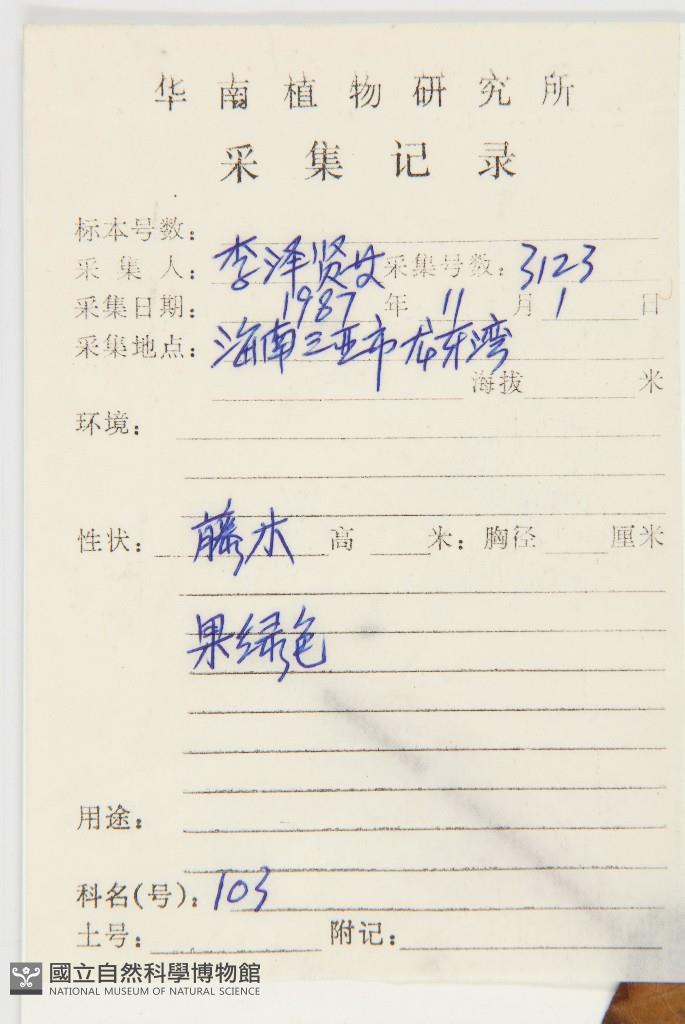 华南植物研究所
采集记录
标本号数：
采集人：李泽贤 采集号数：3123
采集日期：1987年11月1日
采集地点：海南三亚市龙东湾
海拔 米
环境：
性状：藤木 高 米：胸径 厘米
果绿色
用途：
科名(号)：103
土号： 附记：
國立自然科學博物館
NATIONAL MUSEUM OF NATURAL SCIENCE